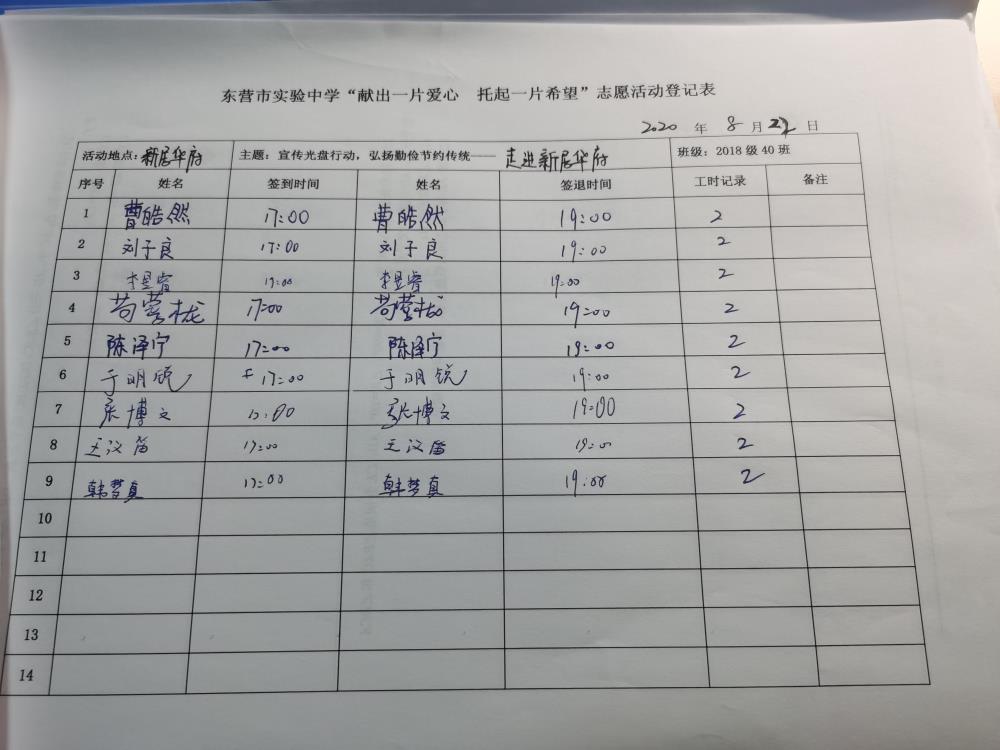 东营市实验中学“献出一片爱心 托起一片希望”志愿活动登记表
2020 年 8 月 日
活动地点：新居华府 主题：宣传光盘行动，弘扬勤俭节约传统—— 走进新居华府 班级：2018 级 40 班
序号 姓名 签到时间 姓名 签退时间 工时记录 备注
1 曹皓然 17:00 曹皓然 19:00 2
2 刘子良 17:00 刘子良 19:00 2
3 李昱睿 李昱睿 19:00 2
4 苟营栊 17:00 苟营栊 19:00 2
5 陈泽宁 17:00 陈泽宁 19:00 2
6 于明锐 17:00 于明锐 19:00 2
7 张博文 张博文 19:00 2
8 王汉笛 17:00 王汉笛 2
9 韩梦真 17:00 韩梦真 19:00 2
10
11
12
13
14